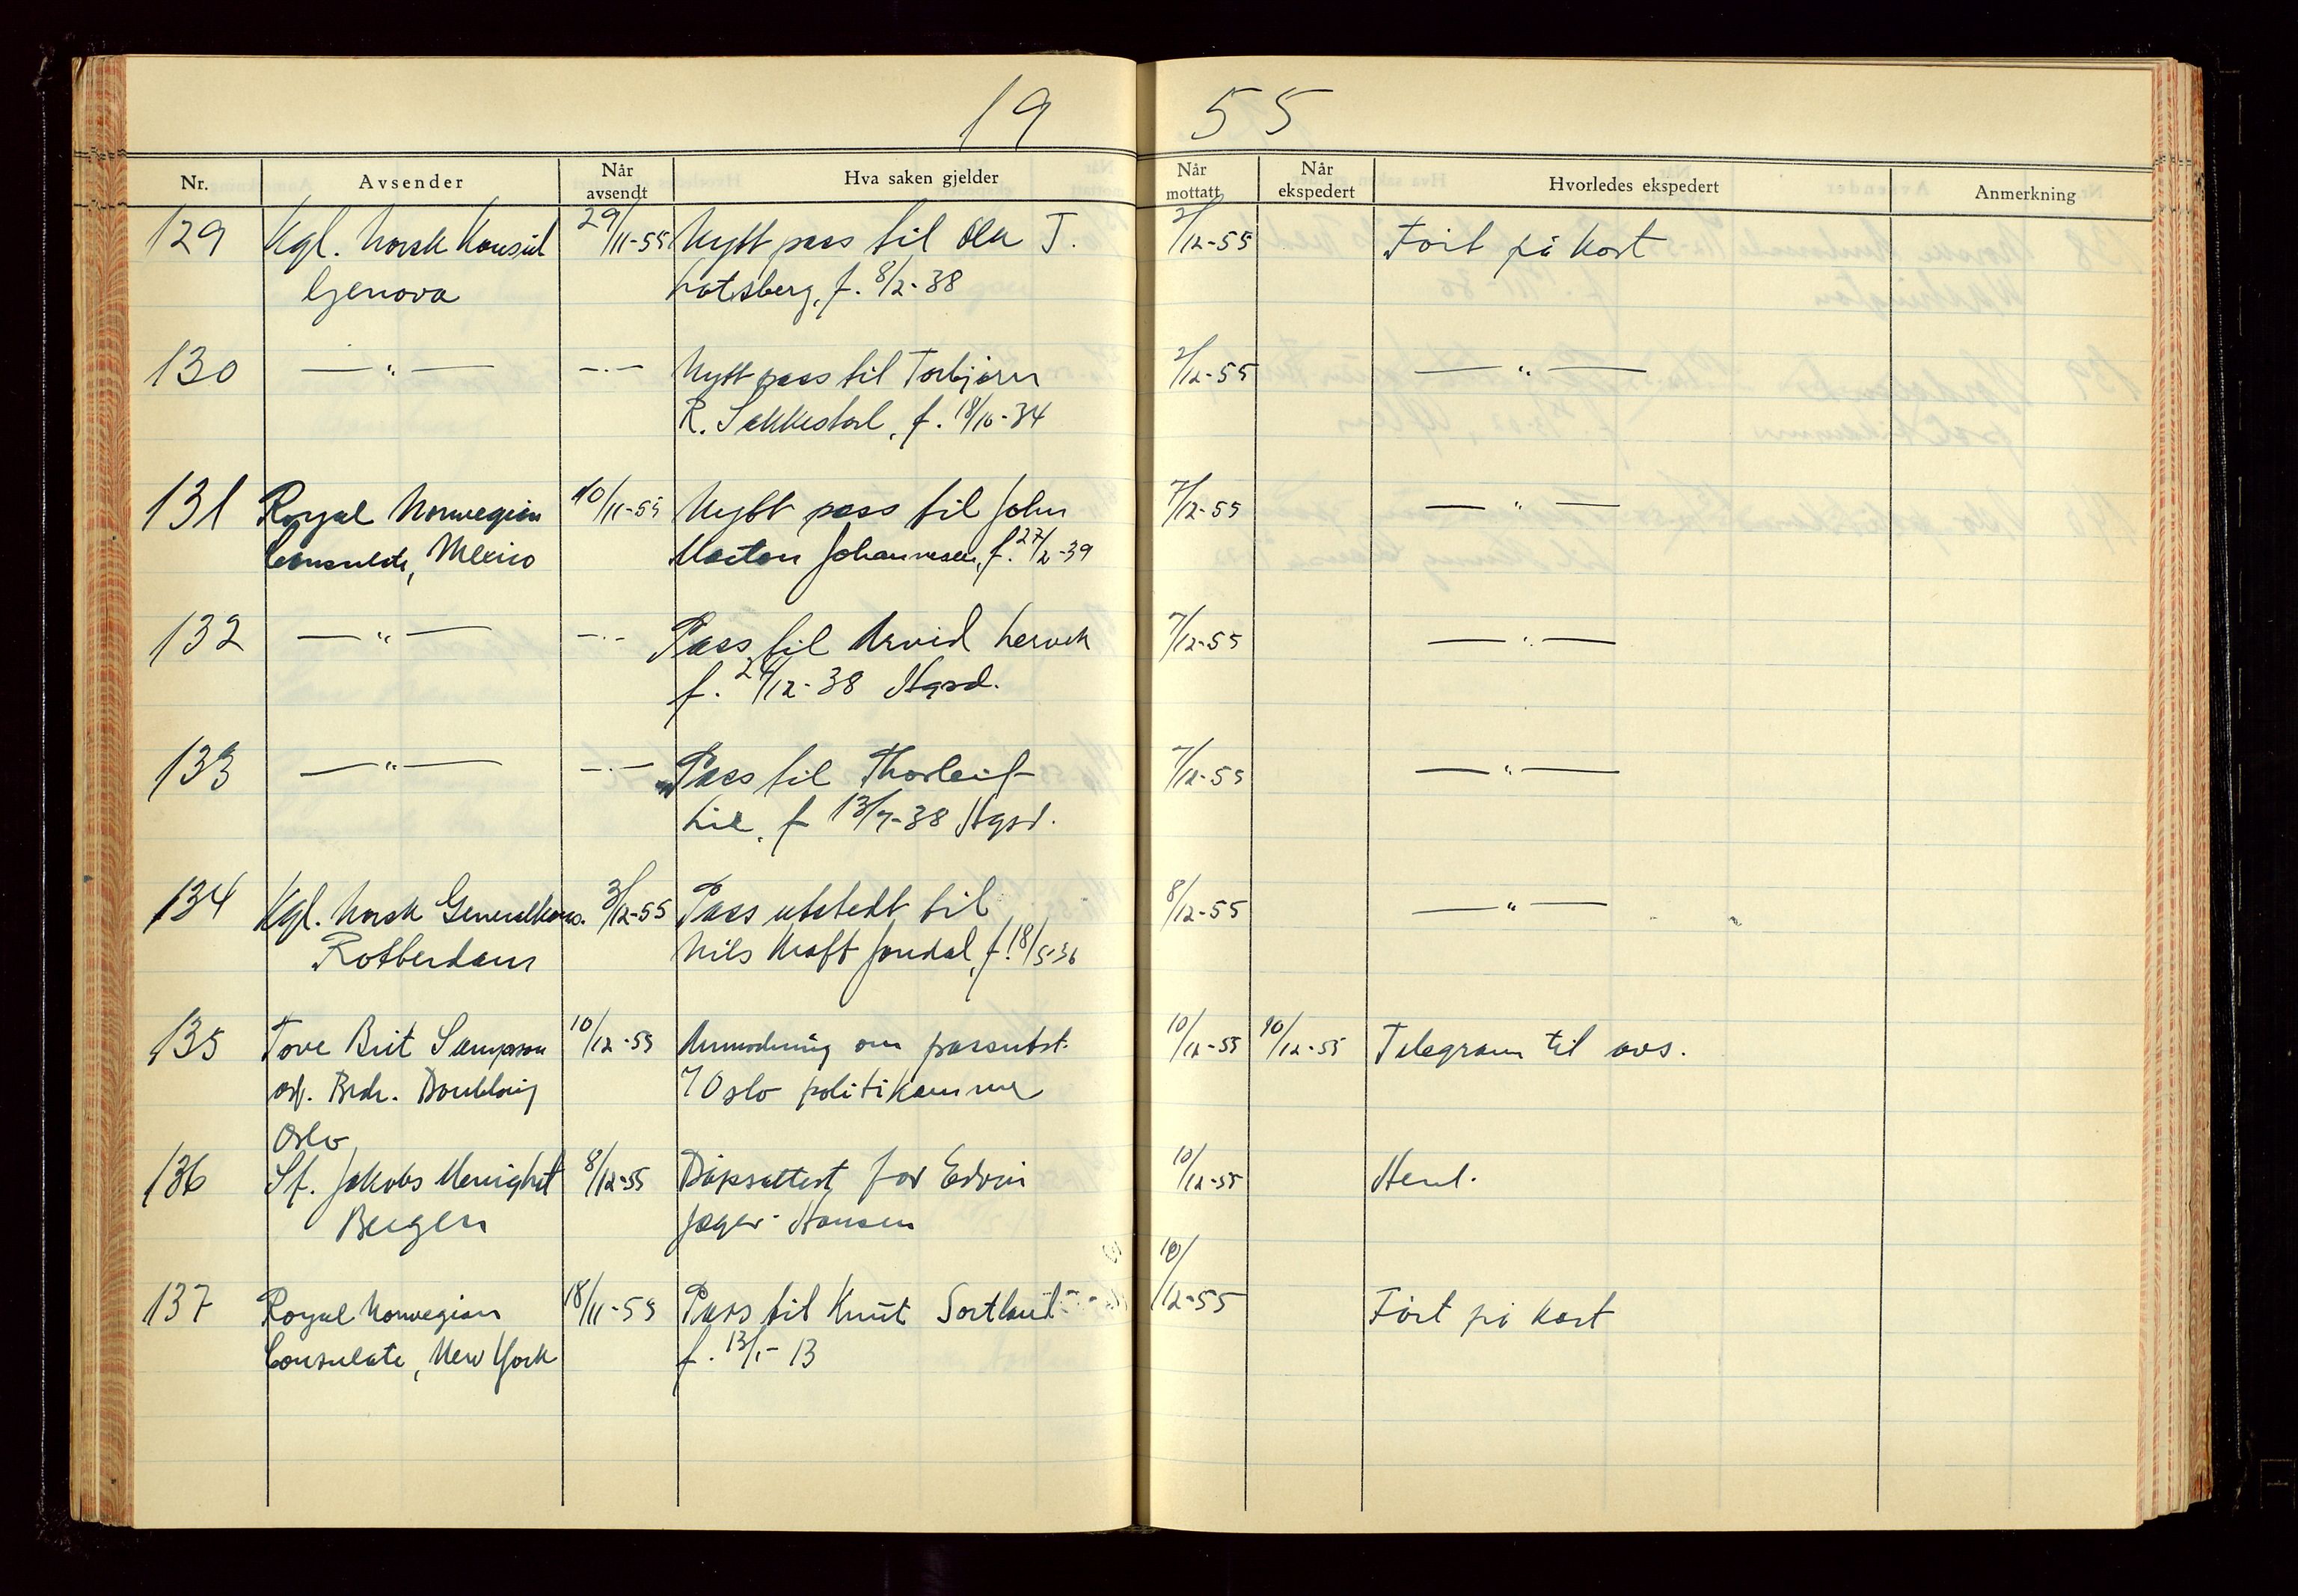 19 55
Nr. Avsender Når avsendt Hva saken gjelder Når mottatt Når ekspedert Hvorledes ekspedert Anmerkning
129 Kgl. Norsk Konsul 29/11-55 Nytt pass til Ola J. 2/12-55 Ført på kort
Genova Lotsberg, f. 8/2-38
130 — " — — " — Nytt pass til Torbjørn 2/12-55 — " —
R. Sekkestad, f. 18/10-34
131 Royal Norwegian 10/11-55 Nytt pass til John 7/12-55 — " —
Consulate, Mexico Morton Johannesen, f. 27/2-39
132 — " — — " — Pass til Arvid Lervik 7/12-55 — " —
f. /12-38 Hgsd.
133 — " — — " — Pass til Thorleif 7/12-55 — " —
Lie, f 13/7-38 Hgsd.
134 Kgl. Norsk Generalkons. 3/12-55 Pass utstedt til 8/12-55 — " —
Rotterdam Nils Kraft Jondal, f. 18/5-36
135 Tove Brit Sampson 10/12-55 Anmodning om passutst. 10/12-55 10/12-55 Telegram til avs.
Brdr. Oslo politikammer
Oslo
136 St. Jakobs Menighet 8/12-55 Dåpsattest for Edvin 10/12-55 Henl.
Bergen Jæger-Hansen
137 Royal Norwegian 18/11-55 Pass til Knut Sortland 10/12-55 Ført på kort
Consulate, New York f. 13/1-13